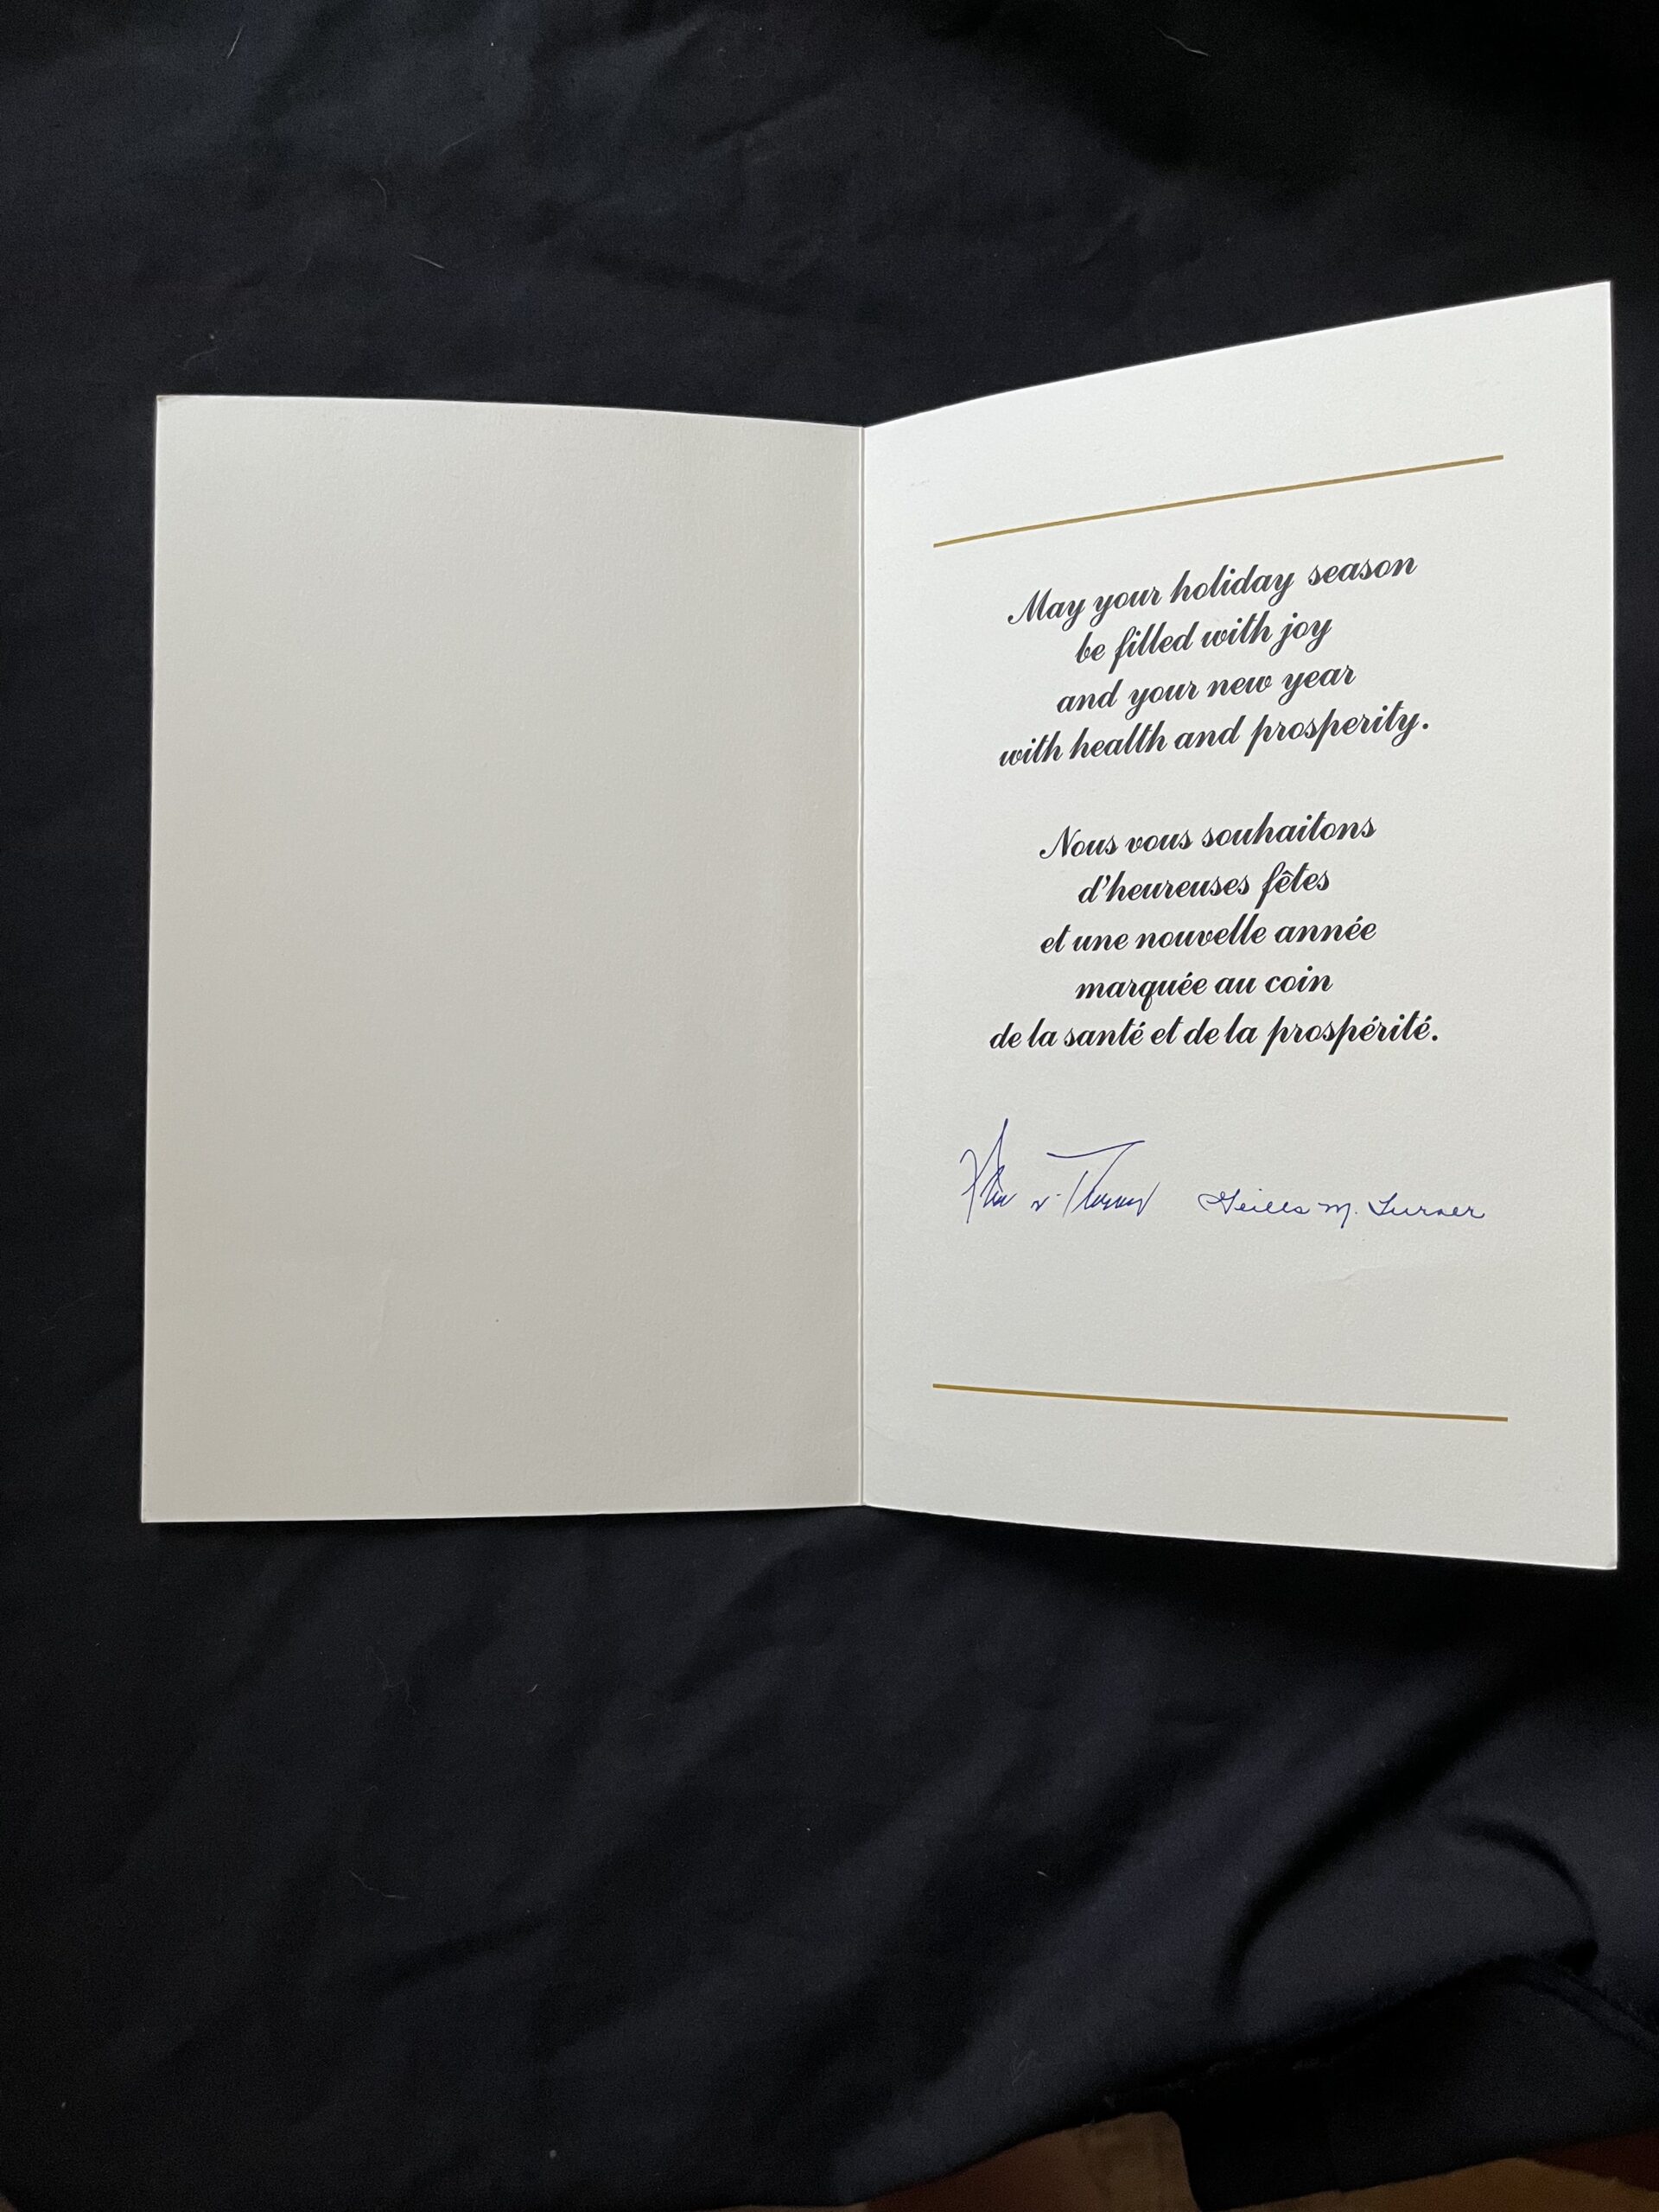 May your holiday season
be filled with joy
and your new year
with health and prosperity.
Nous vous souhaitons
d'heureuses fêtes
et une nouvelle année
marquée au coin
de la santé et de la prospérité.
Geills M. Turner